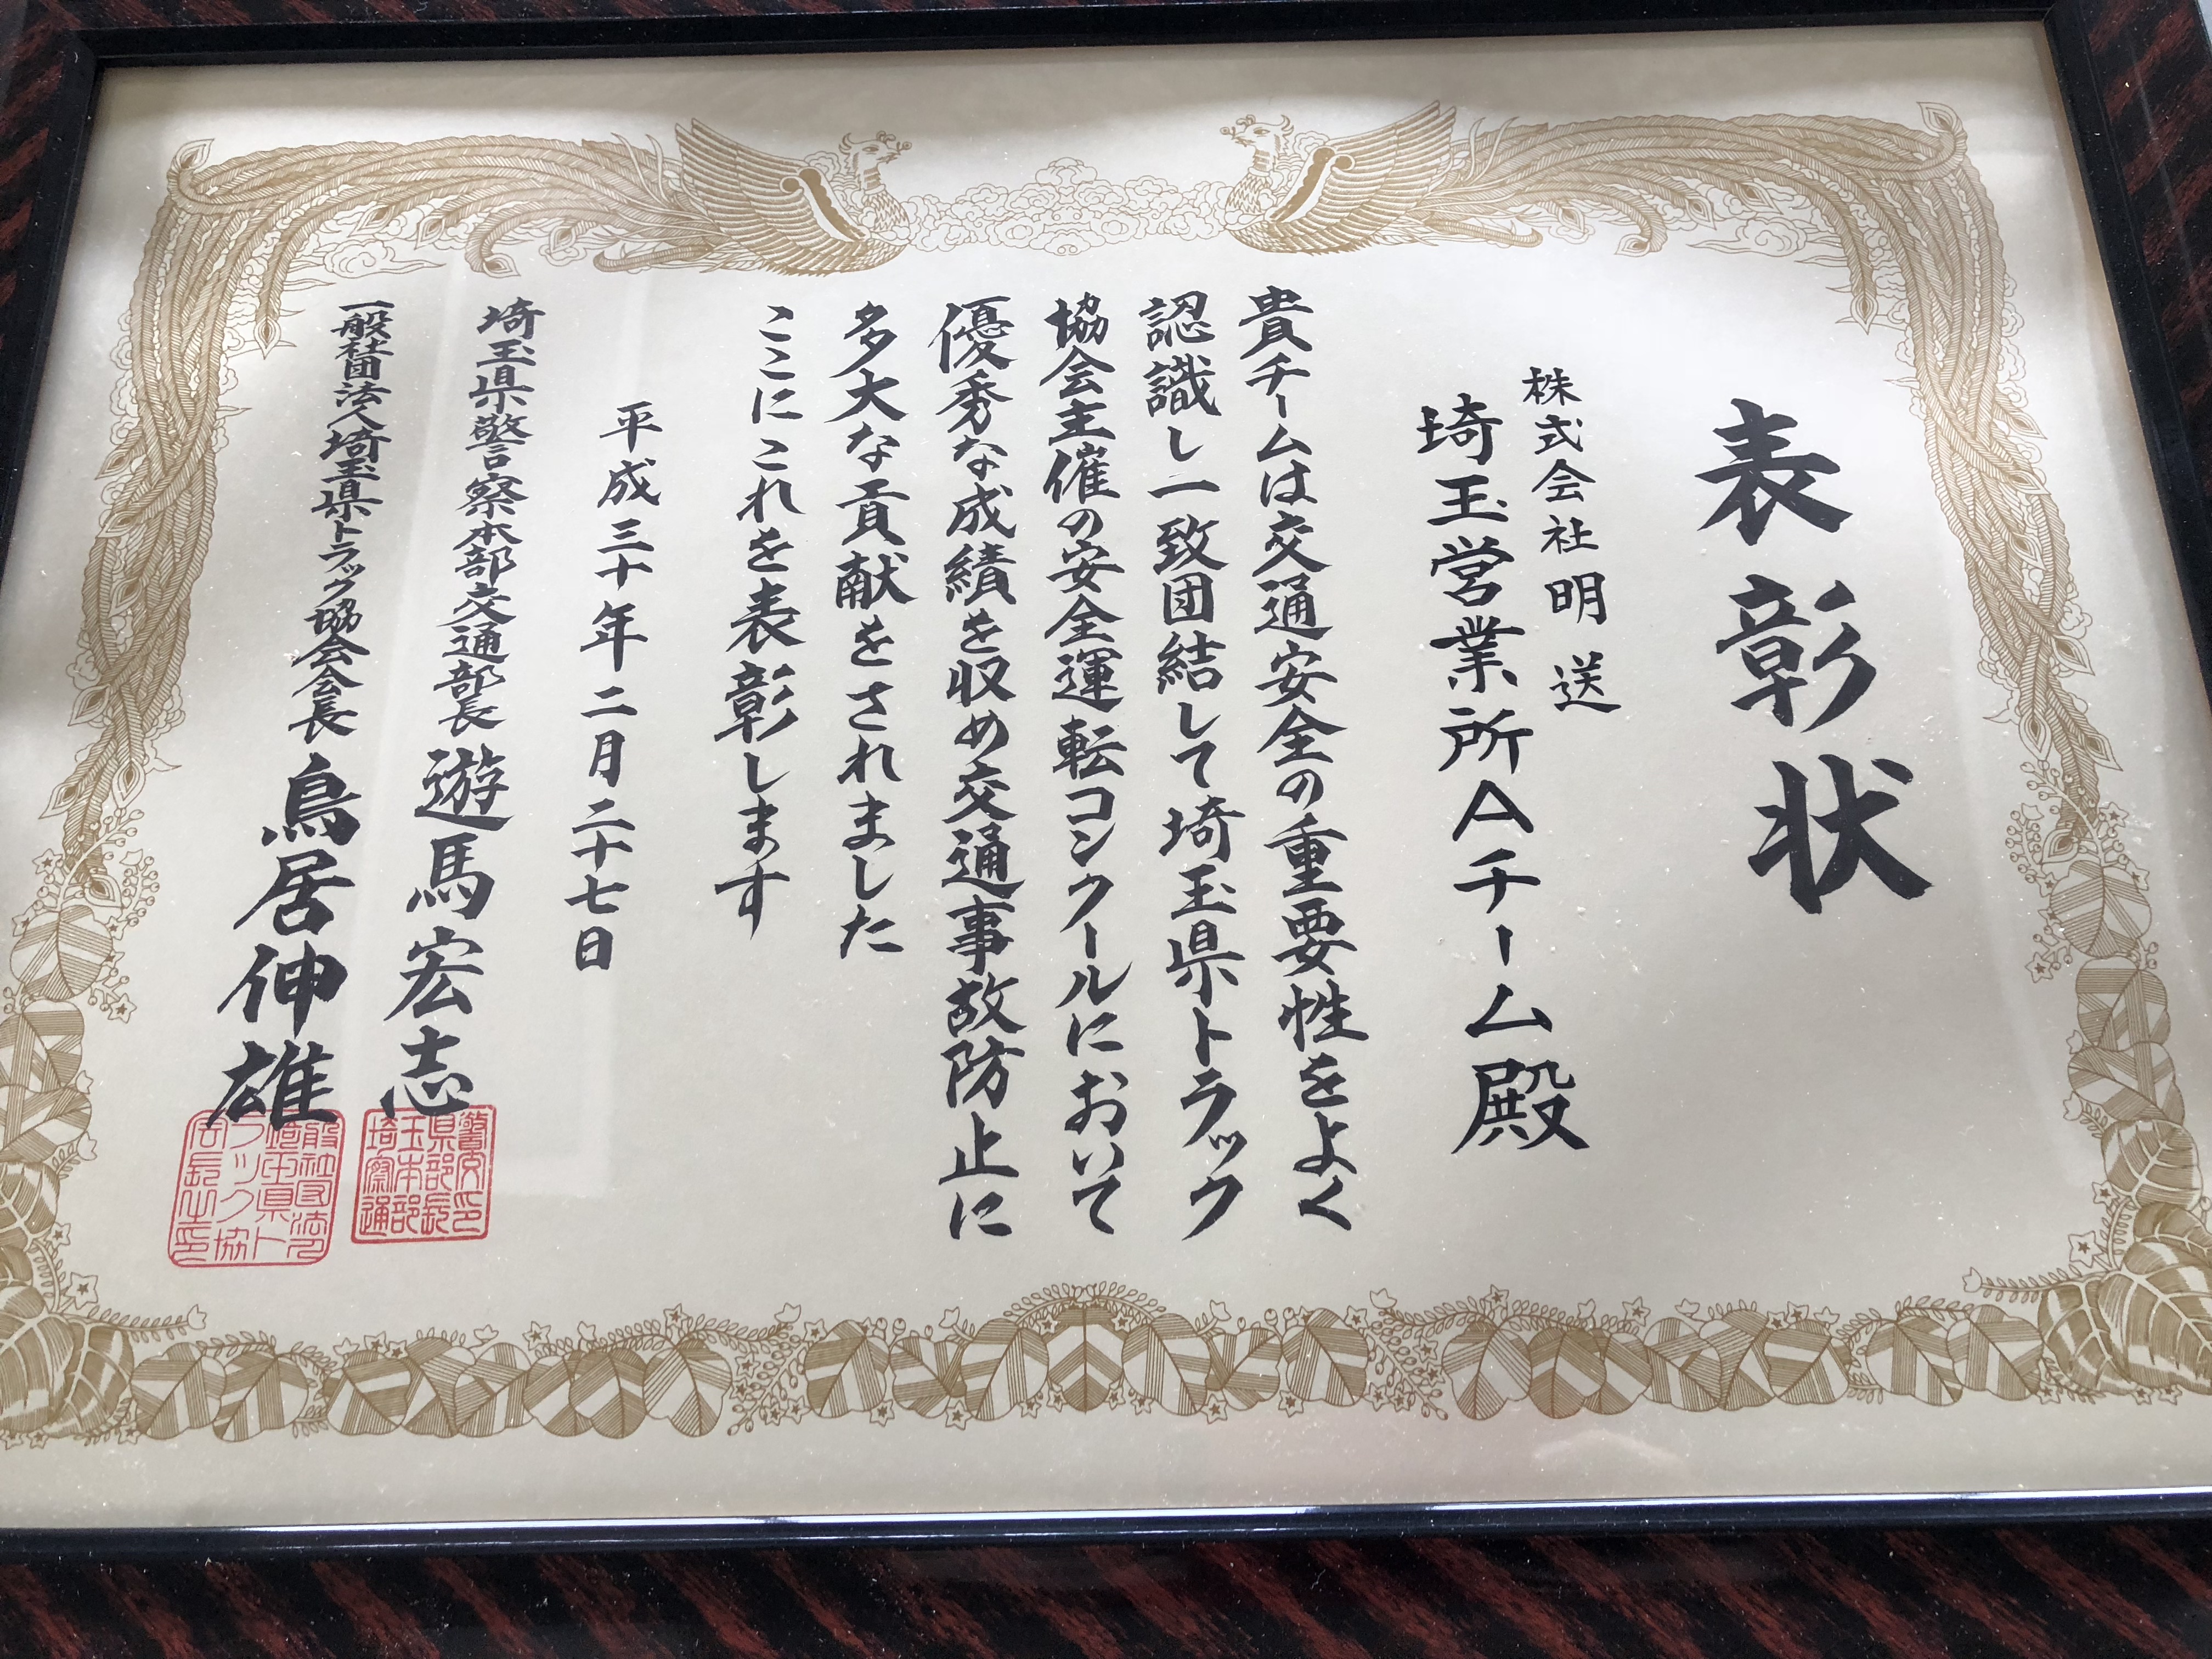 表彰状
株式会社明送
埼玉営業所Aチーム殿
貴チームは交通安全の重要性をよく
認識し一致団結して埼玉県トラック
協会主催の安全運転コンクールにおいて
優秀な成績を収め交通事故防止に
多大な貢献をされました
ここにこれを表彰します
平成三十年二月二十七日
埼玉県警察本部交通部長 遊馬宏志
一般社団法人埼玉県トラック協会会長 鳥居伸雄